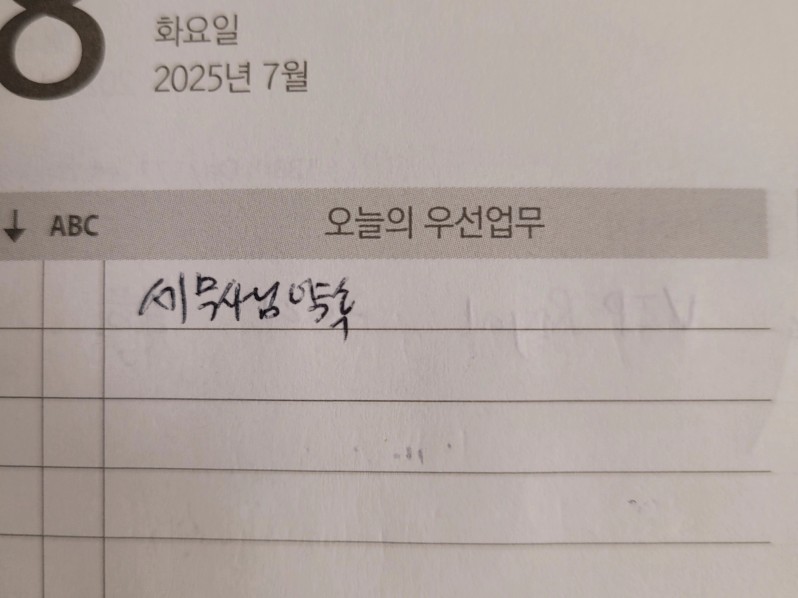 8
화요일
2025년 7월
↓ ABC 오늘의 우선업무
세무사님 약속